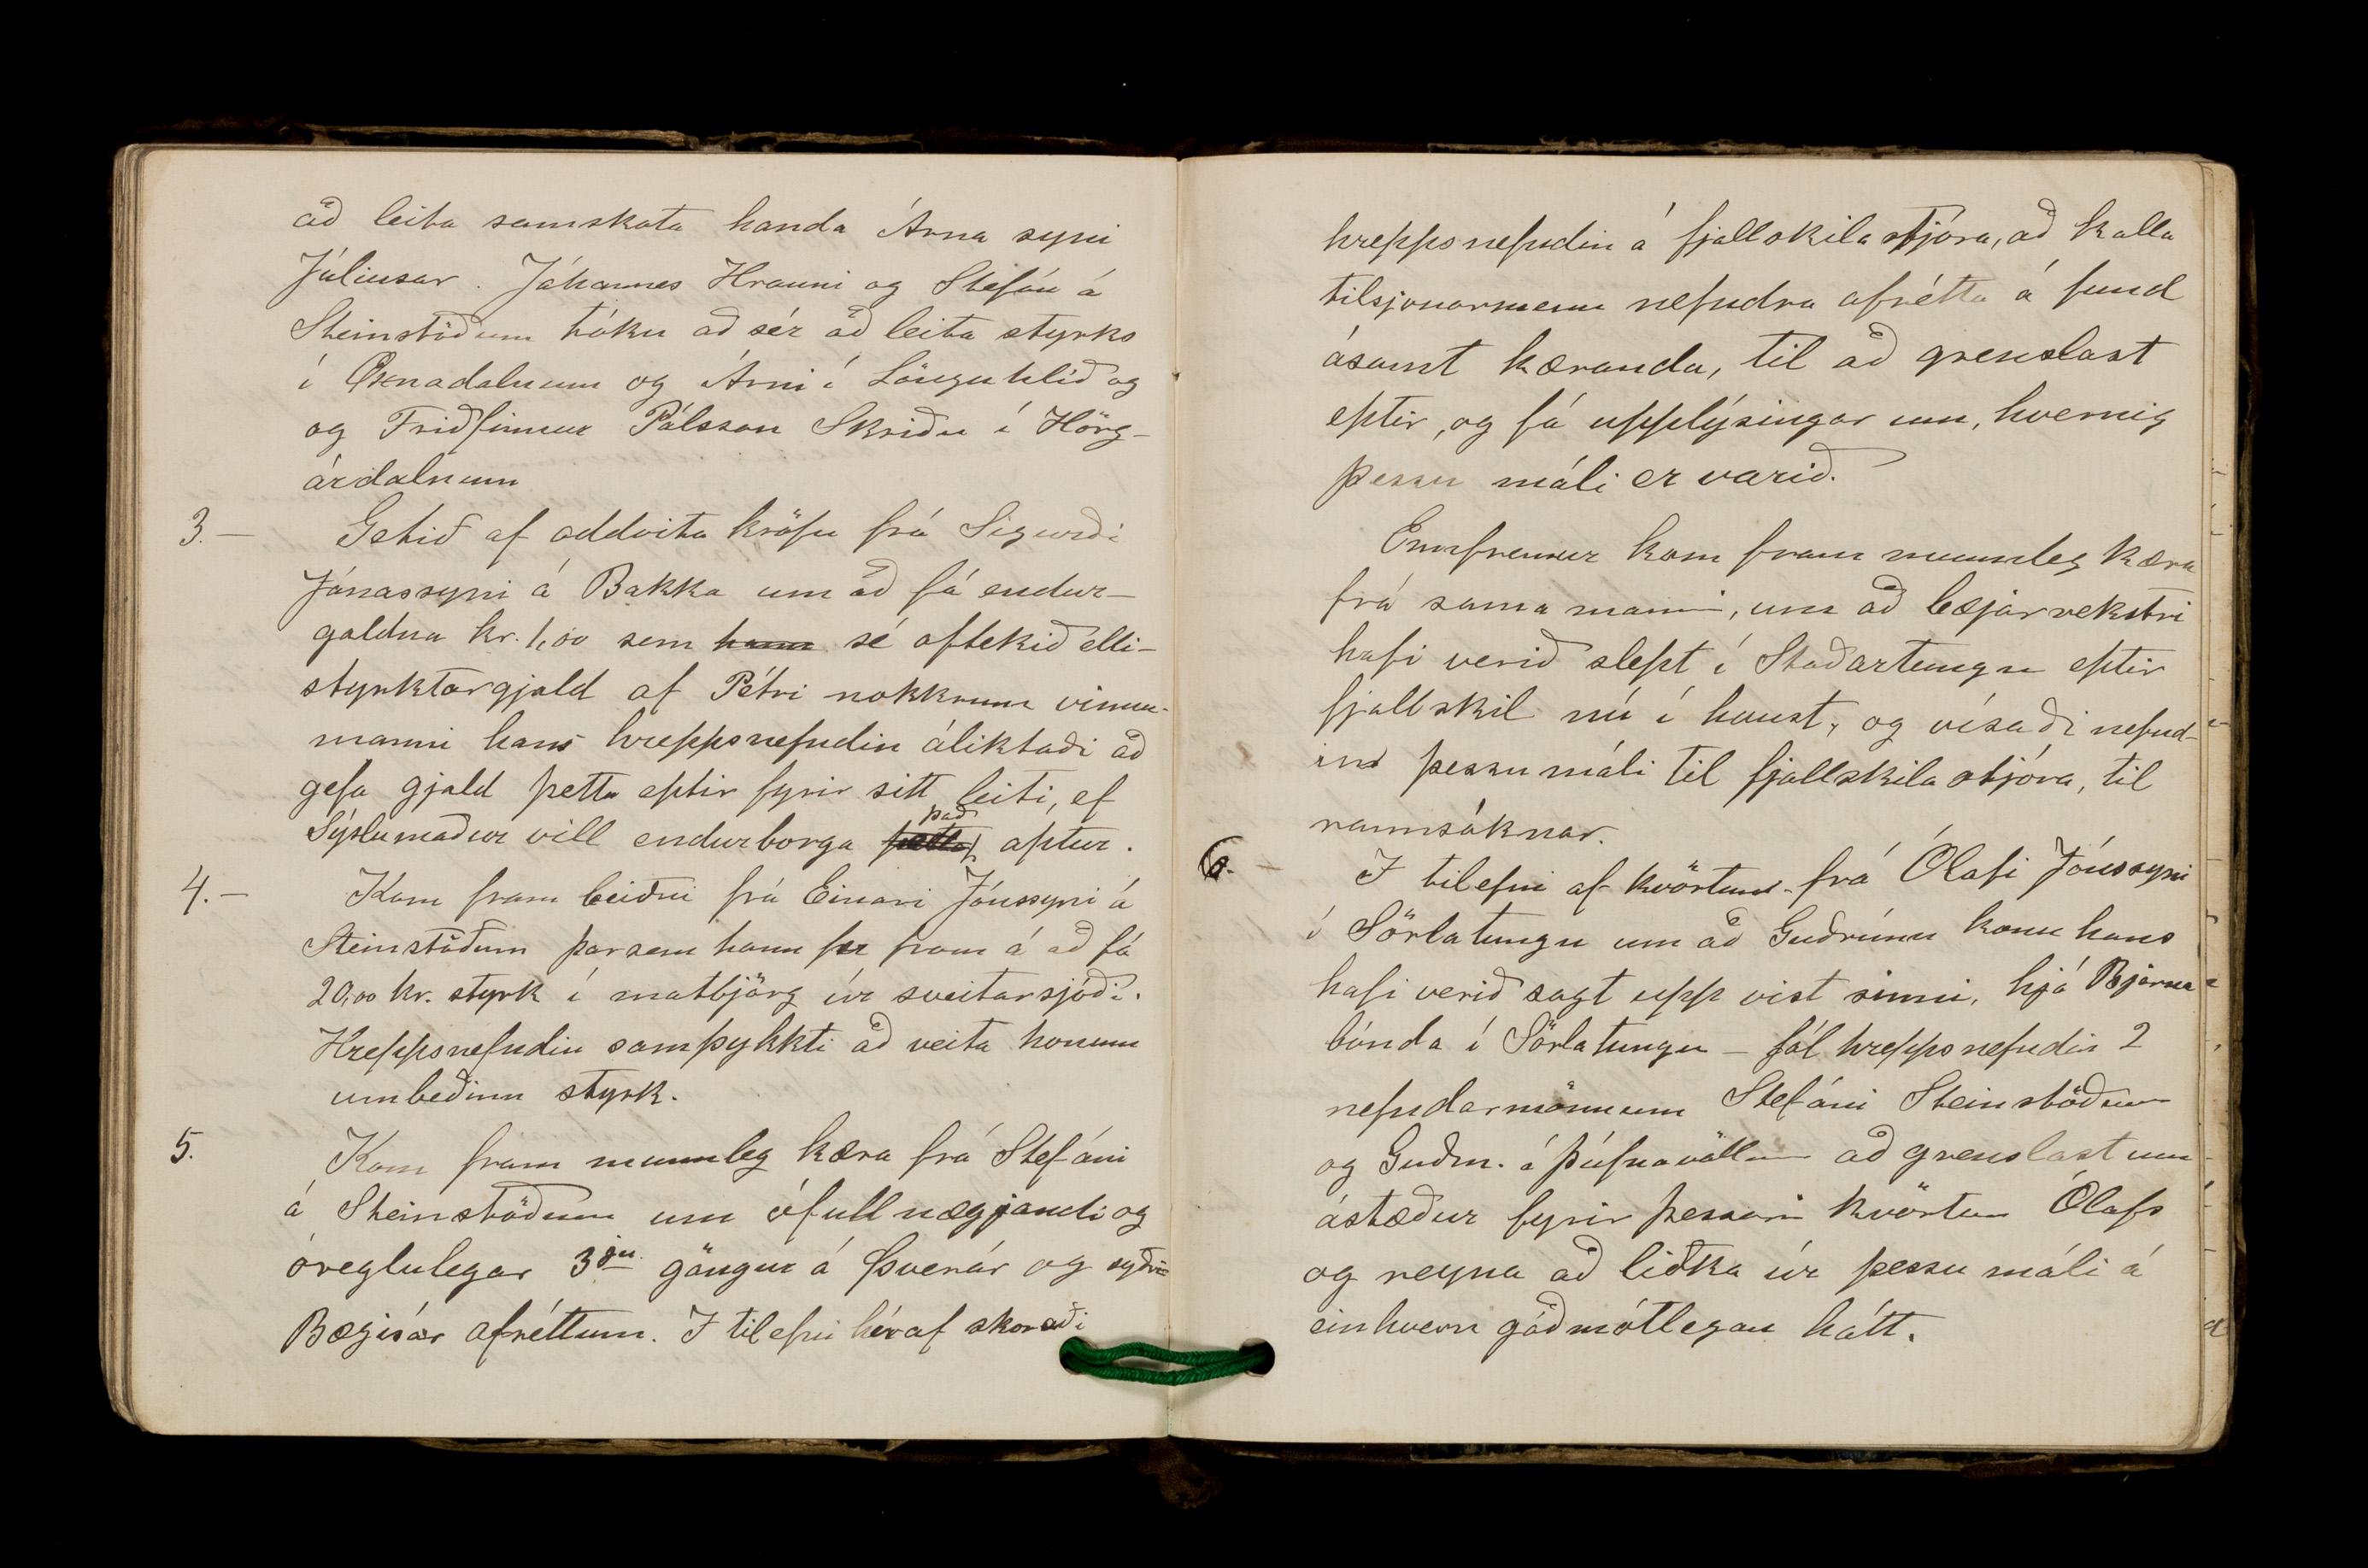 að leita samskota handa Árna syni
Júlíusar. Jóhannes Hrauni og Stefán á
Steinstöðum tóku að sér að leita styrks
í Öxnadalnum og Árni í Lönguhlíð og
og Friðfinnur Pálsson Skriðu í Hörg-
árdalnum
3.- Getið af oddvita kröfu frá Sigurði
Jónassyni á Bakka um að fá endur-
goldna kr. 1,00 sem hann sé oftekið elli-
styrktargjald af Pétri nokkrum vinnu-
manni hans hreppsnefndin áliktaði að
gefa gjald þetta eptir fyrir sitt leiti, ef
Sýslumaður vill endurborga þetta það aptur.
4.- Kom fram beiðni frá Einari Jónssyni á
Steinstöðum þar sem hann fer fram á að fá
20,00 kr. styrk í matbjörg úr sveitarsjóði.
Hreppsnefndin samþykkti að veita honum
umbeðinn styrk.
5. Kom fram munnleg kæra frá Stefáni
á Steinstöðum um ófullnægjandi og
óreglulegar 3ju göngur á Þverár og syðri-
Bægisár afréttum. I tilefni héraf skoraði
hreppsnefndin á fjallskilastjóra, að kalla
tilsjonarmenn nefndra afrétta á fund
ásamt kæranda, til að grenslast
eptir, og fá upplýsingar um, hvernig
þessu máli er varið.
Ennfremur kom fram munnleg kæra
frá sama manni, um að bæjarrekstri
hafi verið slept í Staðartungu eptir
fjallskil nú í haust, og vísaði nefnd-
in þessu máli til fjallskilastjóra, til
rannsóknar.
6.- I tilefni af kvörtun frá Ólafi Jónssyni
í Sörlatungu um að Guðrúnu konu hans
hafi verið sagt upp vist sinni, hjá Bjarna
bónda í Sörlatungu - fól hreppsnefndin 2
nefndarmönnum Stefáni Steinstöðum
og Guðm. á Þúfnavöllum að grenslast um
ástæður fyrir þessari kvörtun Ólafs
og reyna að liðka úr þessu máli á
einhvern góðmótlegan hátt.